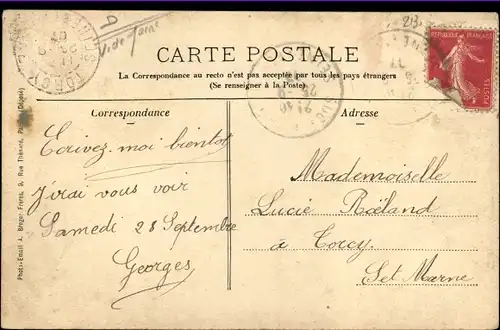 CARTE POSTALE
La Correspondance au recto n'est pas acceptée par tous les pays étrangers
(Se renseigner à la Poste)
Correspondance
Ecrivez moi bientôt
J'irai vous voir
Samedi 28 Septembre
Georges
Adresse
Mademoiselle
Lucie Rœland
à Torcy
Set Marne
REPUBLIQUE FRANÇAISE
TORCY
Photo-Email A. Breger Frères, 9, Rue Thénard,